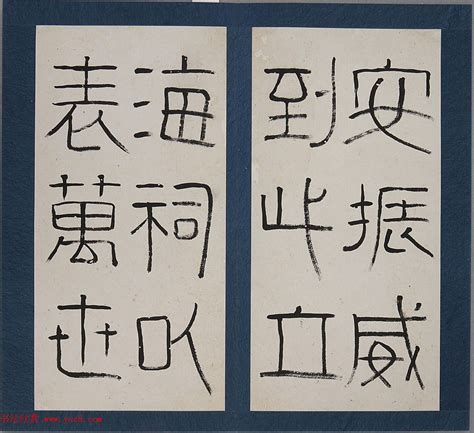 安振威
到此立
海祠以
表萬世
www.yac8.com